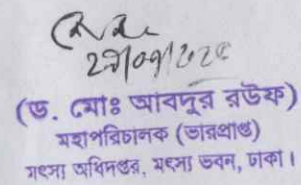 ২৭/০৭/২০২৫
(ড. মোঃ আবদুর রউফ)
মহাপরিচালক (ভারপ্রাপ্ত)
মৎস্য অধিদপ্তর, মৎস্য ভবন, ঢাকা।